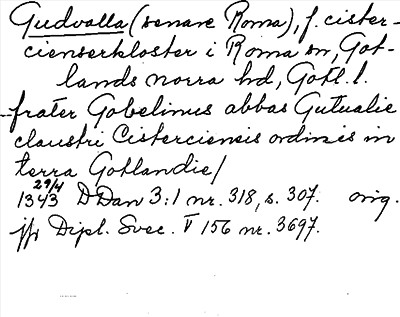 Gudvalla (senare Roma), f. cister-
cienserkloster i Roma sn, Got-
lands norra hd, Gotl. l.
-frater Gobelinus abbas Gutualie
claustri Cisterciensis ordinis in
terra Gotlandie/
29/4
1343 DDan 3:1 nr. 318, s. 307. orig.
jfr Dipl. Svec. V 156 nr. 3697.